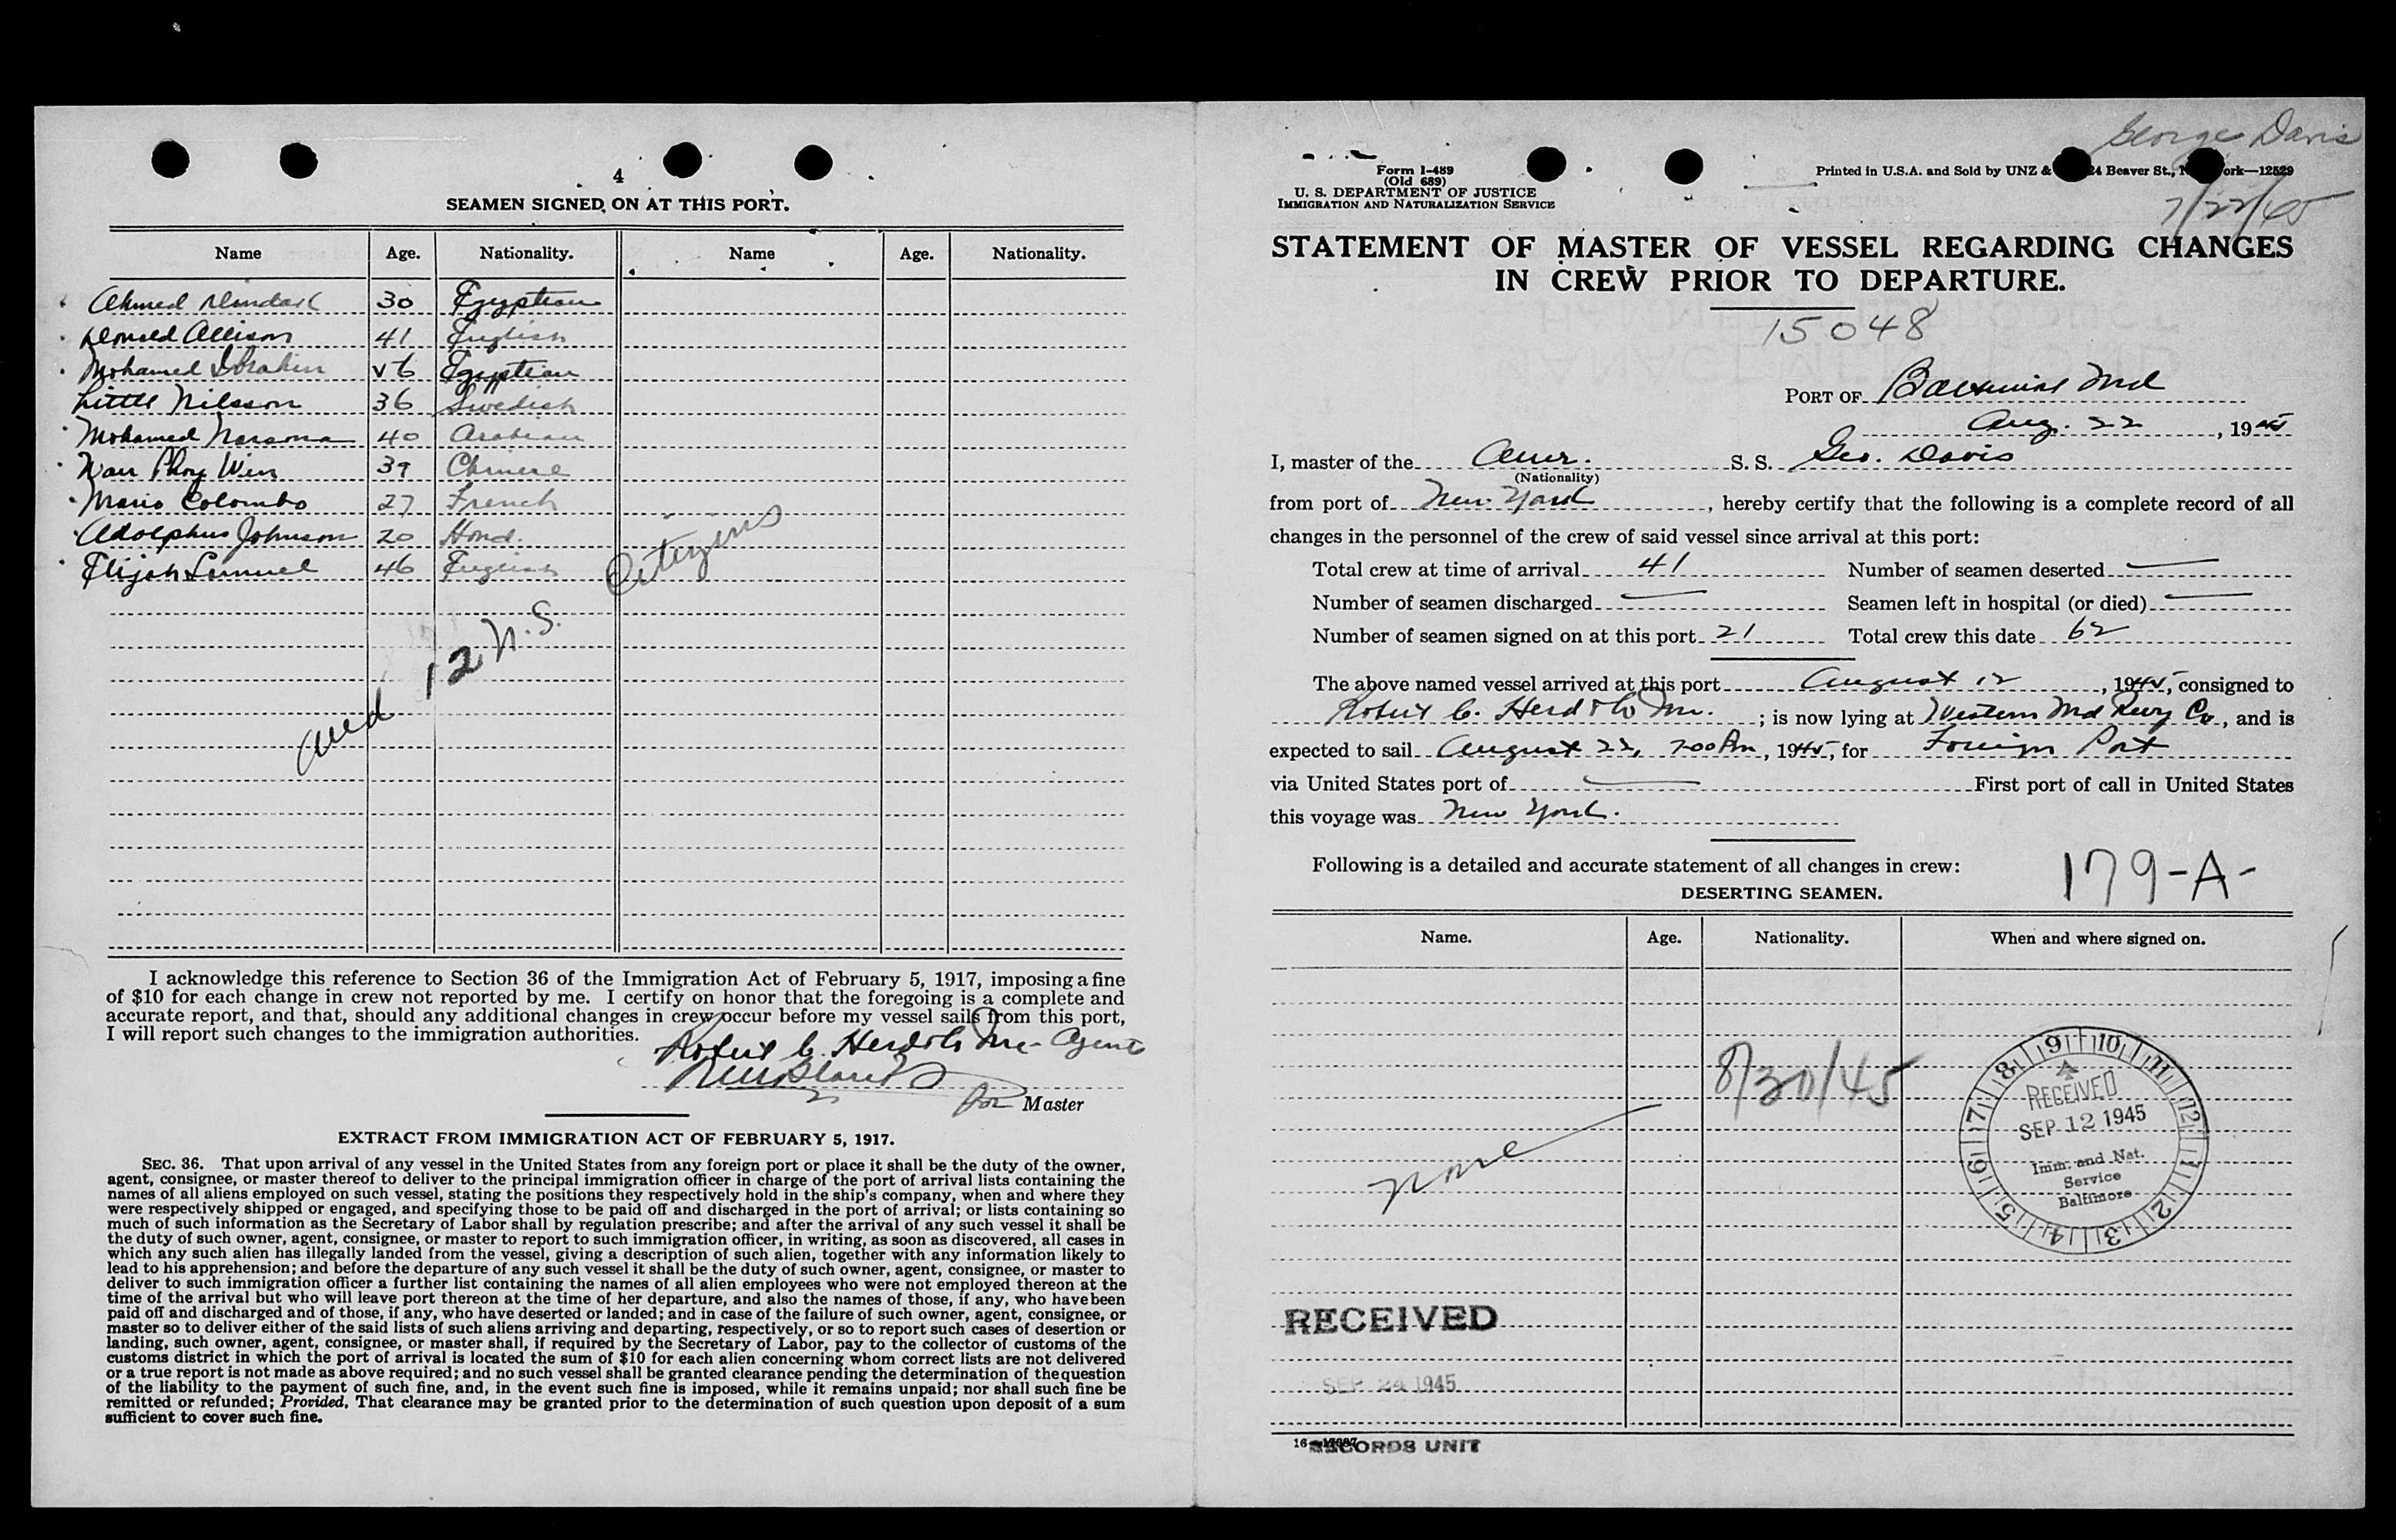 4
SEAMEN SIGNED ON AT THIS PORT.
Name Age. Nationality. Name Age. Nationality.
Ahmed 30 Egyptian
Donald Allison 41 English
Mohamed Ibrahim 26 Egyptian
Nilsson 36 Swedish
Mohamed 40 Arabian
Wan Phoy Win 39 Chinese
Mario Colombo 27 French
Adolphus Johnson 20 Hond.
Elijah Lemuel 46 English
and 12 U.S. Citizens
I acknowledge this reference to Section 36 of the Immigration Act of February 5, 1917, imposing a fine
of $10 for each change in crew not reported by me. I certify on honor that the foregoing is a complete and
accurate report, and that, should any additional changes in crew occur before my vessel sails from this port,
I will report such changes to the immigration authorities.
Robert C. Herd & Co Inc. Agents
for Master
EXTRACT FROM IMMIGRATION ACT OF FEBRUARY 5, 1917.
SEC. 36. That upon arrival of any vessel in the United States from any foreign port or place it shall be the duty of the owner,
agent, consignee, or master thereof to deliver to the principal immigration officer in charge of the port of arrival lists containing the
names of all aliens employed on such vessel, stating the positions they respectively hold in the ship's company, when and where they
were respectively shipped or engaged, and specifying those to be paid off and discharged in the port of arrival; or lists containing so
much of such information as the Secretary of Labor shall by regulation prescribe; and after the arrival of any such vessel it shall be
the duty of such owner, agent, consignee, or master to report to such immigration officer, in writing, as soon as discovered, all cases in
which any such alien has illegally landed from the vessel, giving a description of such alien, together with any information likely to
lead to his apprehension; and before the departure of any such vessel it shall be the duty of such owner, agent, consignee, or master to
deliver to such immigration officer a further list containing the names of all alien employees who were not employed thereon at the
time of the arrival but who will leave port thereon at the time of her departure, and also the names of those, if any, who have been
paid off and discharged and of those, if any, who have deserted or landed; and in case of the failure of such owner, agent, consignee, or
master so to deliver either of the said lists of such aliens arriving and departing, respectively, or so to report such cases of desertion or
landing, such owner, agent, consignee, or master shall, if required by the Secretary of Labor, pay to the collector of customs of the
customs district in which the port of arrival is located the sum of $10 for each alien concerning whom correct lists are not delivered
or a true report is not made as above required; and no such vessel shall be granted clearance pending the determination of the question
of the liability to the payment of such fine, and, in the event such fine is imposed, while it remains unpaid; nor shall such fine be
remitted or refunded; Provided, That clearance may be granted prior to the determination of such question upon deposit of a sum
sufficient to cover such fine.
George Davis
7/22/45
Form I-489
(Old 689)
U. S. DEPARTMENT OF JUSTICE
IMMIGRATION AND NATURALIZATION SERVICE
Printed in U.S.A. and Sold by UNZ & 24 Beaver St., N ork—12529
STATEMENT OF MASTER OF VESSEL REGARDING CHANGES
IN CREW PRIOR TO DEPARTURE.
15048
PORT OF Baltimore Md
Aug. 22, 1945
I, master of the Amer. S. S. Geo. Davis
(Nationality)
from port of New York, hereby certify that the following is a complete record of all
changes in the personnel of the crew of said vessel since arrival at this port:
Total crew at time of arrival 41 Number of seamen deserted —
Number of seamen discharged — Seamen left in hospital (or died) —
Number of seamen signed on at this port 21 Total crew this date 62
The above named vessel arrived at this port August 12, 1945, consigned to
Robert C. Herd & Co Inc. ; is now lying at Western Md Rwy Co, and is
expected to sail August 22, 7:00 Pm, 1945, for Foreign Port
via United States port of — First port of call in United States
this voyage was New York.
Following is a detailed and accurate statement of all changes in crew:
179-A-
DESERTING SEAMEN.
Name. Age. Nationality. When and where signed on.
8/30/45
None
9 10 11 12 1 2 3 4 5 6 7 8
RECEIVED
SEP 12 1945
Imm. and Nat.
Service
Baltimore
RECEIVED
SEP 24 1945
16
RECORDS UNIT